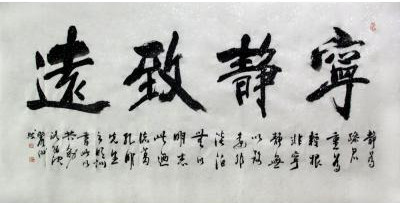 寧靜致遠
靜為
躁君
重為
輕根
非寧
靜無
以致
遠非
淡泊
無以
明志
此迺
諸葛
孔明
先生
之明訓
書此以